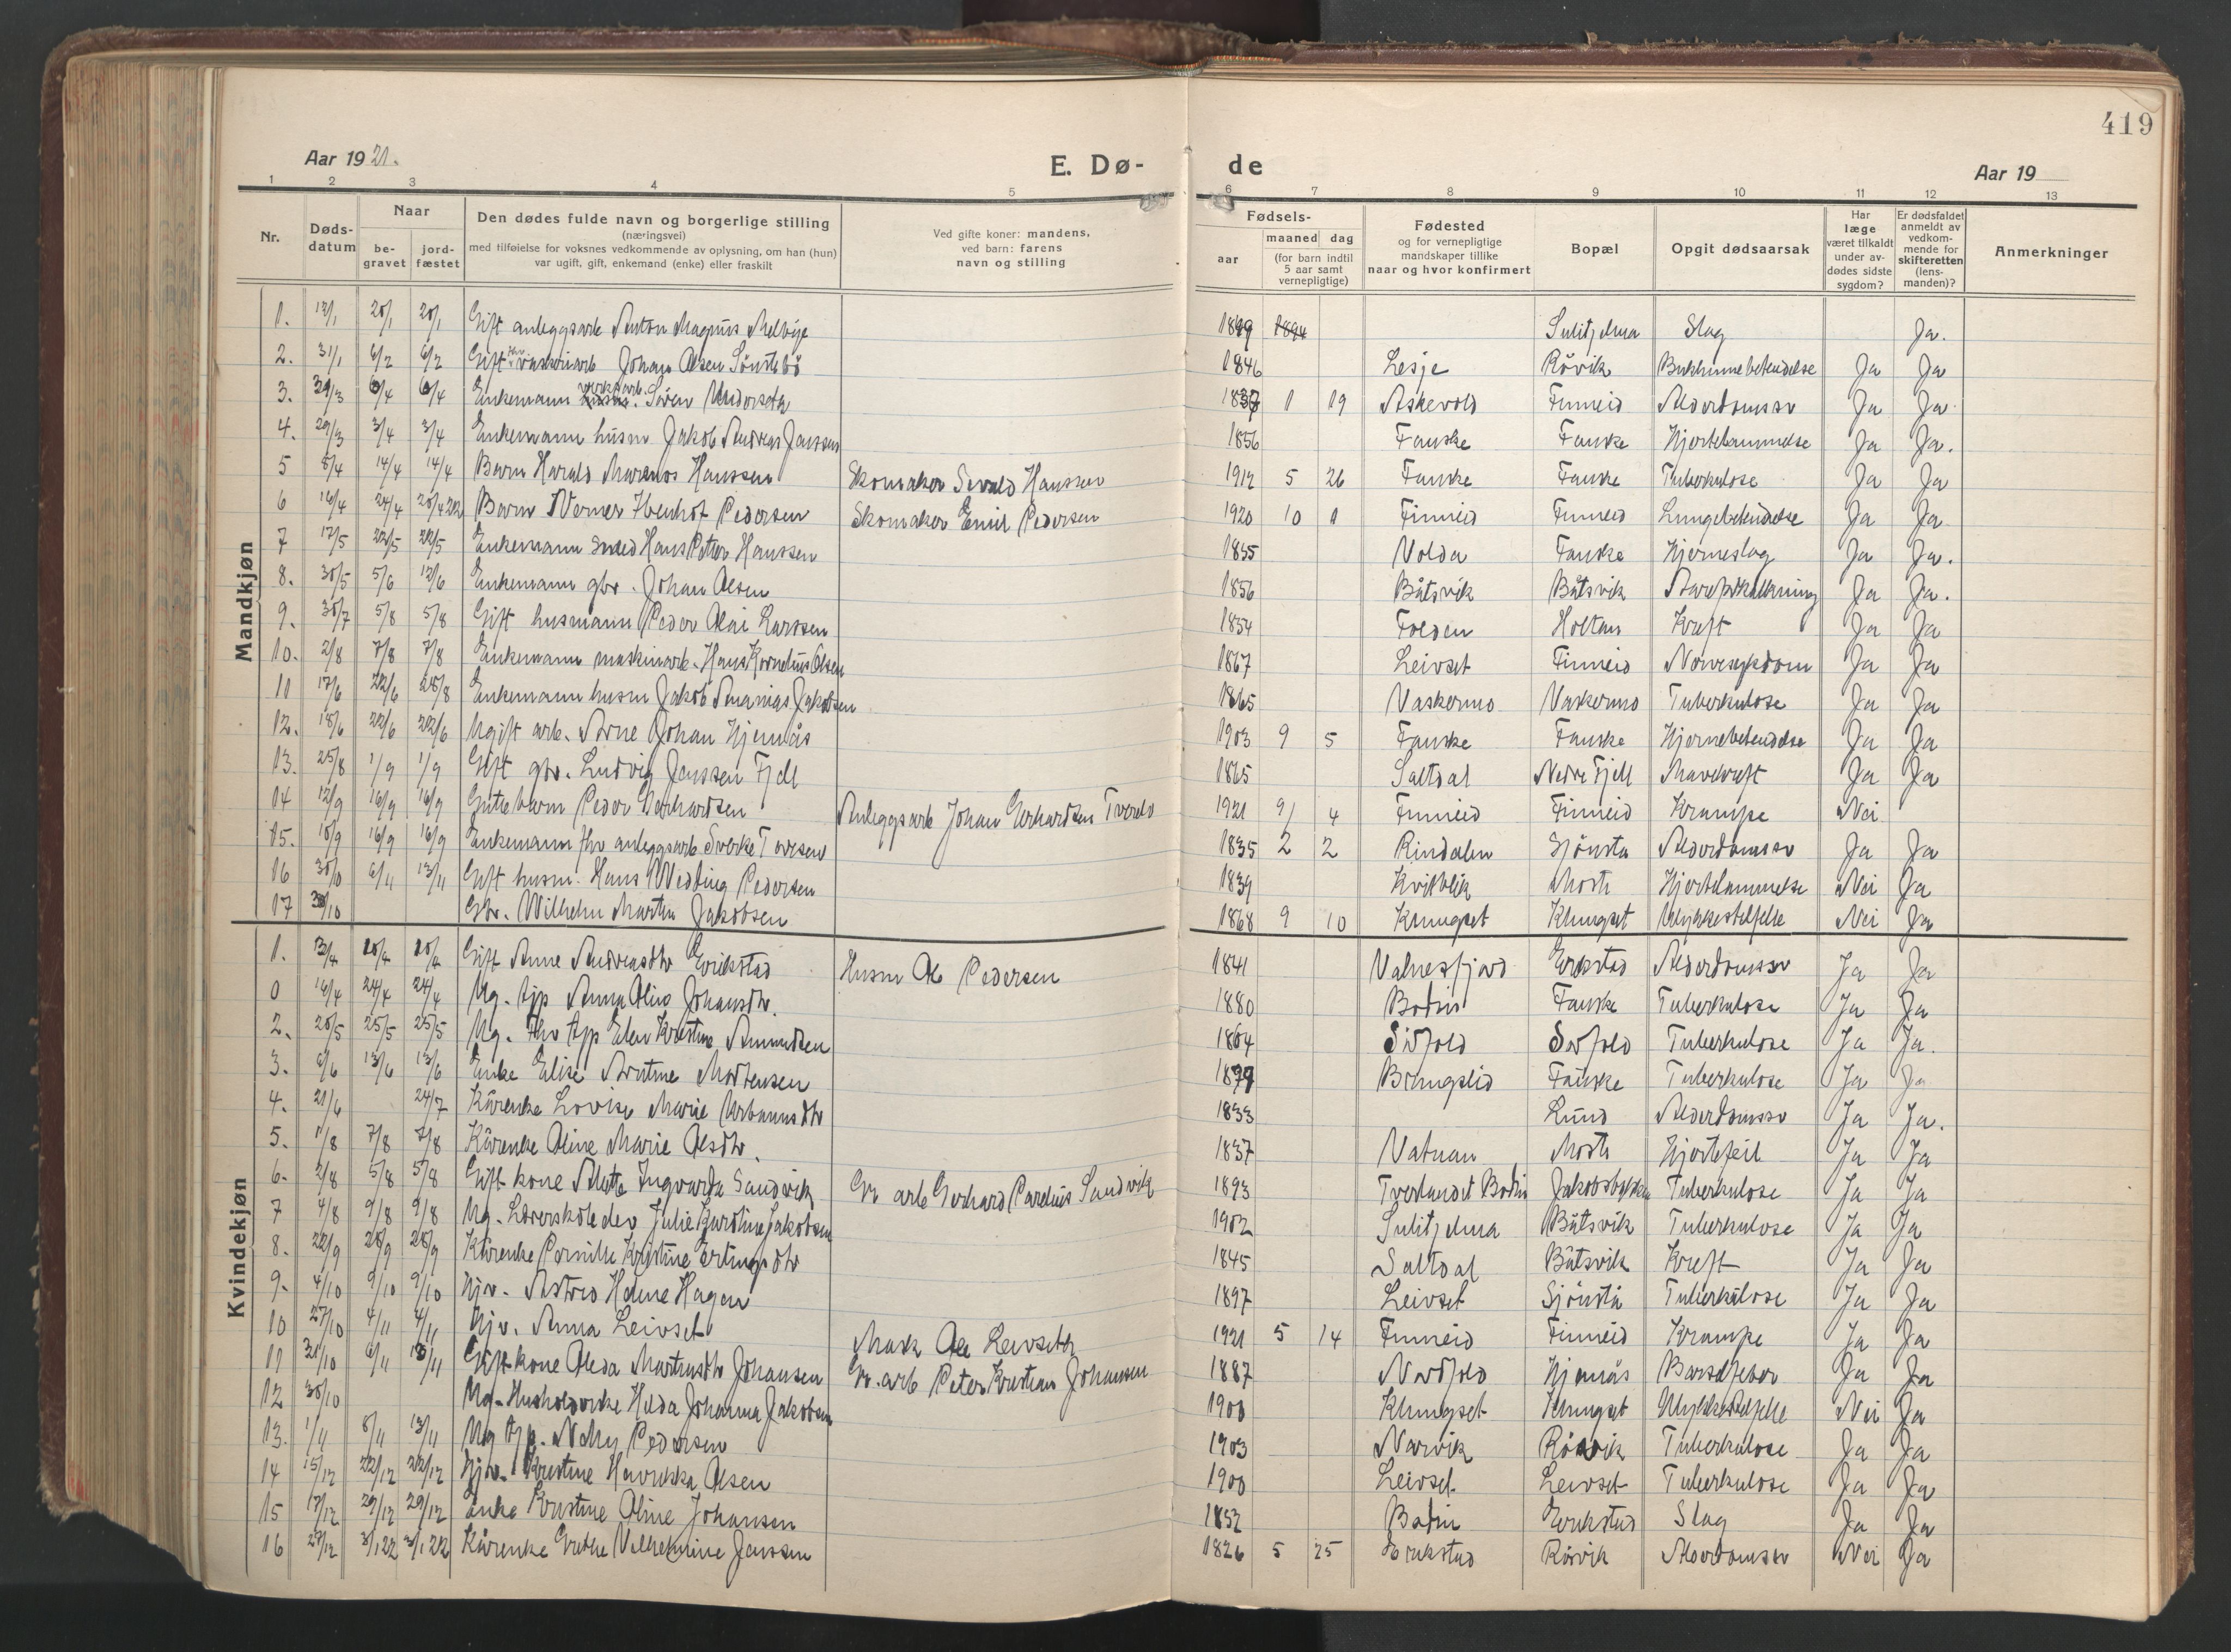 419
Aar 1921.
E. Dø-
de
Aar 19
1 2 3 4 5 6 7 8 9 10 11 12 13
Nr.
Døds-
datum
Naar
be-
gravet
jord-
fæstet
Den dødes fulde navn og borgerlige stilling
(næringsvei)
med tilføielse for voksnes vedkommende av oplysning, om han (hun)
var ugift, gift, enkemand (enke) eller fraskilt
Ved gifte koner: mandens,
ved barn: farens
navn og stilling
Fødsels-
aar
maaned dag
(for barn indtil
5 aar samt
vernepligtige)
Fødested
og for vernepligtige
mandskaper tillike
naar og hvor konfirmert
Bopæl
Opgit dødsaarsak
Har
læge
været tilkaldt
under av-
dødes sidste
sygdom?
Er dødsfaldet
anmeldt av
vedkom-
mende for
skifteretten
(lens-
manden)?
Anmerkninger
Mandkjøn
1. 12/1 20/1 20/1 Gift anleggsarb Anton Magnus Melbye 1894 Sulitjelma Slag Ja.
2. 31/1 6/2 6/2 Gift Johan Olsen Sønstebø 1846 Lesje Røvik Bukhinnebetendelse Ja Ja
3. 29/3 6/4 6/4 Enkemann Søren Underseth 1837 1 19 Askevold Finneid Alderdomssv Ja Ja
4. 29/3 3/4 3/4 Enkemann husm Jakob Andreas Janssen 1856 Fauske Fauske Hjertelammelse Ja Ja.
5 8/4 14/4 14/4 Barn Harald Marenos Hanssen Skomaker Sevald Hanssen 1912 5 26 Fauske Fauske Tuberkulose Ja Ja
6 16/4 24/4 Barn Werner Ibenhof Pedersen Skomaker Emil Pedersen 1920 10 1 Finneid Finneid Lungebetendelse Ja Ja
7 17/5 22/5 22/5 Enkemann smed Hans Petter Hanssen 1855 Volda Fauske Hjerneslag Ja Ja.
8. 30/5 5/6 12/6 Enkemann gbr. Johan Olsen 1856 Båtsvik Båtsvik Ja Ja.
9. 30/7 5/8 5/8 Gift husmann Peder Olai Larssen 1854 Folden Holtan Kreft Ja Ja
10. 2/8 7/8 7/8 Enkemann maskinarb. Hans Kornelius Olsen 1867 Leivset Finneid Nervesykdom Ja Ja
11 17/6 22/6 28/8 Enkemann husm Jakob Ananias Jakobsen 1865 Vaskermo Vaskermo Tuberkulose Ja Ja
12. 18/6 22/6 22/6 Ugift arb. Arne Johan Hjemås 1903 9 5 Fauske Fauske Hjernebetendelse Ja Ja
13. 25/8 1/9 1/9 Gift gbr. Ludvig Janssen Fjell 1865 Saltdal Nedre Fjell Mavekreft Ja Ja
14 12/9 16/9 16/9 Guttebarn Peder Gerhardsen Anleggsarb Johan Gerhardsen 1921 9 4 Finneid Finneid Krampe Nei
15. 10/9 16/9 16/9 Enkemann fhv anleggsarb Sverke Toresen 1835 2 2 Rindalen Sjønsta Alderdomssv Ja Ja
16 30/10 6/11 13/11 Gift husm. Hans Wedting Pedersen 1839 Kvikblik Mosti Hjertelammelse Nei Ja
17 30/10 Gbr. Wilhelm Martin Jakobsen 1868 9 10 Klungset Klungset Ulykkestilfelle Nei Ja
Kvindekjøn
1. 13/4 20/4 20/4 Gift Anne Andreasdtr Erikstad Husm Ole Pedersen 1841 Valnesfjord Erikstad Alderdomssv Ja Ja
0 16/4 24/4 24/4 Ug. tjp Anna Oline Johansdtr. 1880 Bodin Fauske Tuberkulose Ja Ja
2. 20/5 25/5 25/5 Ug. Fhv tjp Elen Kristine Amundsen 1864 Sørfold Sørfold Tuberkulose Ja Ja.
3. 6/6 13/6 13/6 Enke Elise Arntine Mortensen 1879 Brungslid Fauske Tuberkulose Ja Ja
4. 21/6 24/7 Kårenke Lovise Marie Urbanusdtr 1833 Lund Alderdomssv Ja Ja.
5. 1/8 7/8 7/8 Kårenke Oline Marie Olsdtr. 1837 Vatnan Mosti Hjertefeil Ja Ja
6. 2/8 5/8 5/8 Gift kone Alette Ingvarda Sandvik Gr. arb Gerhard Parelius Sandvik 1893 Tverlandet Bodin Jakobsbakken Tuberkulose Ja Ja
7 4/8 9/8 9/8 Ug. Lærerskoleelev Julie Karoline Jakobsen 1902 Sulitjelma Båtsvik Tuberkulose Ja Ja
8. 22/9 28/9 28/9 Kårenke Pernille Kristine Ertungsdtr 1845 Saltdal Båtsvik Kreft Ja Ja
9. 4/10 9/10 9/10 Hjv. Astrid Helene Hagen 1897 Leivset Sjønstå Tuberkulose Ja Ja
10 27/10 4/11 4/11 Hjv. Anna Leivset Mask Ole Leivseth 1921 5 14 Finneid Finneid Krampe Ja Ja
11 31/10 6/11 13/11 Gift kone Aleda Martinsdtr Johansen Gr. arb Peter Kristian Johansen 1887 Nordfold Hjemås Barselfeber Ja Ja
12 30/10 Ug. Husholderske Hilda Johanna Jakobsen 1900 Klungset Klungset Ulykkestilfelle Nei Ja
13. 1/11 8/11 13/11 Ug tjp. Nelly Pedersen 1903 Narvik Røsvik Tuberkulose Ja Ja
14 15/12 22/12 22/12 Hjv. Kristine Henrikka Olsen 1900 Leivset Leivset Tuberkulose Ja Ja
15 17/12 29/12 29/12 Enke Kristine Oline Johansen 1852 Bodin Erikstad Slag Ja Ja
16 27/12 3/1 22 3/1 22 Kårenke Grethe Vilhelmine Janssen 1826 5 25 Erikstad Røsvik Alderdomssv Nei Ja